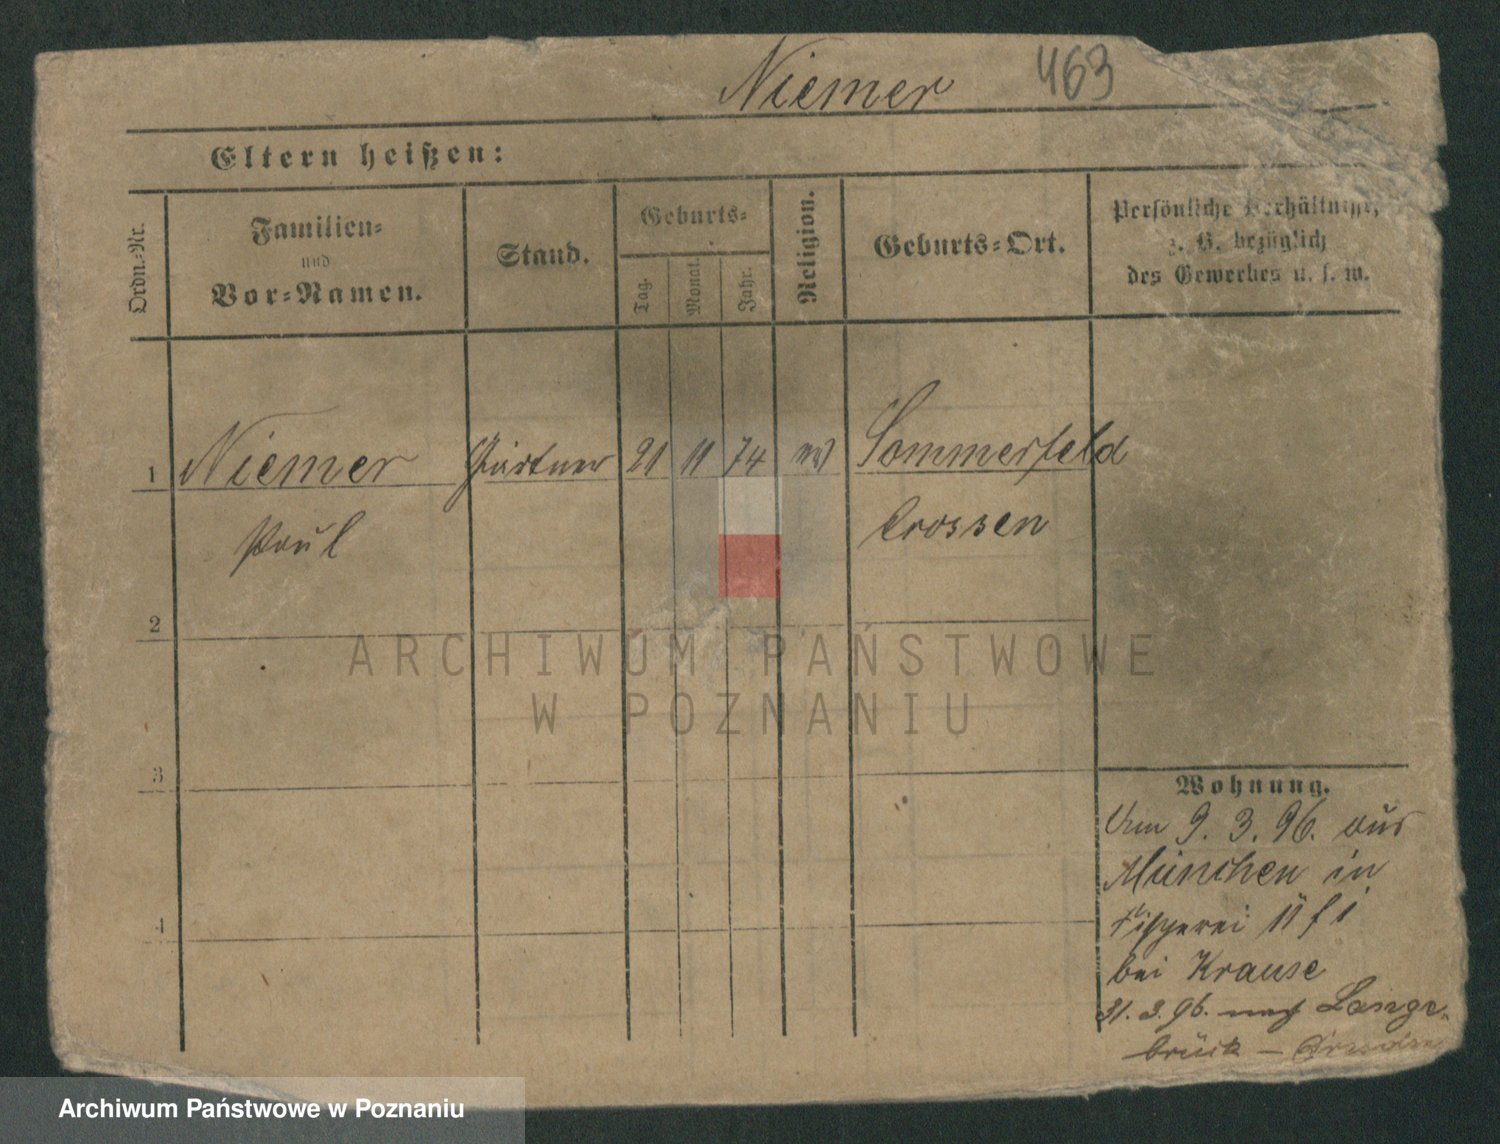 Niemer 463
Eltern heißen:
Ordn.-Nr.
Familien-
und
Vor-Namen.
Stand.
Geburts-
Tag.
Monat.
Jahr.
Religion.
Geburts-Ort.
Persönliche Verhältnisse,
z. B. bezüglich
des Gewerbes u. s. w.
1 Niemer Gärtner 21 11 74 ev Sommerfeld
Paul Crossen
2
3
4
ARCHIWUM PAŃSTWOWE
W POZNANIU
Wohnung.
9. 3. 96. aus
München in
Fischerei 11
bei Krause
31. 3. 96. nach Lange-
brück – Dresden
Archiwum Państwowe w Poznaniu